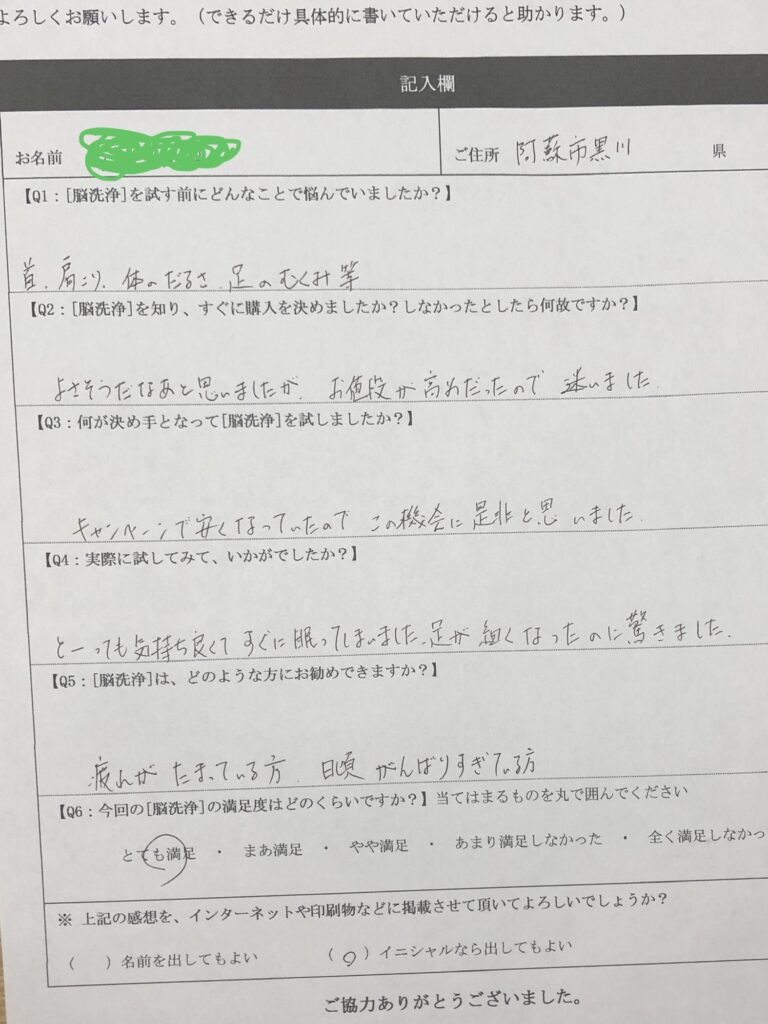 よろしくお願いします。（できるだけ具体的に書いていただけると助かります。）
記入欄
お名前
ご住所 阿蘇市黒川 県
【Q1：[脳洗浄]を試す前にどんなことで悩んでいましたか？】
首、肩こり、体のだるさ、足のむくみ等
【Q2：[脳洗浄]を知り、すぐに購入を決めましたか？しなかったとしたら何故ですか？】
よさそうだなあと思いましたが、お値段が高めだったので迷いました。
【Q3：何が決め手となって[脳洗浄]を試しましたか？】
キャンペーンで安くなっていたのでこの機会に是非と思いました。
【Q4：実際に試してみて、いかがでしたか？】
とーっても気持ち良くてすぐに眠ってしまいました。足が細くなったのに驚きました。
【Q5：[脳洗浄]は、どのような方にお勧めできますか？】
疲れがたまっている方、日頃がんばりすぎている方
【Q6：今回の[脳洗浄]の満足度はどのくらいですか？】当てはまるものを丸で囲んでください
とても満足 ・ まあ満足 ・ やや満足 ・ あまり満足しなかった ・ 全く満足しなかっ
※ 上記の感想を、インターネットや印刷物などに掲載させて頂いてよろしいでしょうか？
（ ）名前を出してもよい （○）イニシャルなら出してもよい
ご協力ありがとうございました。